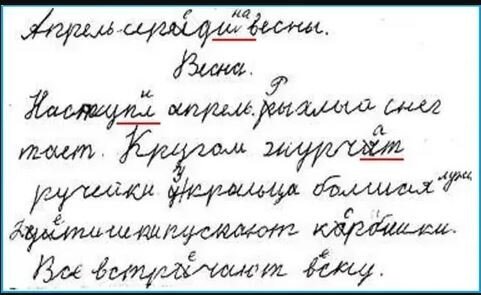 Апрель-середина весны.
Весна.
Наступил апрель. Рыхлый снег
тает. Кругом журчат
ручейки У кральца болшая лужа.
пускают
Все встречают весну.